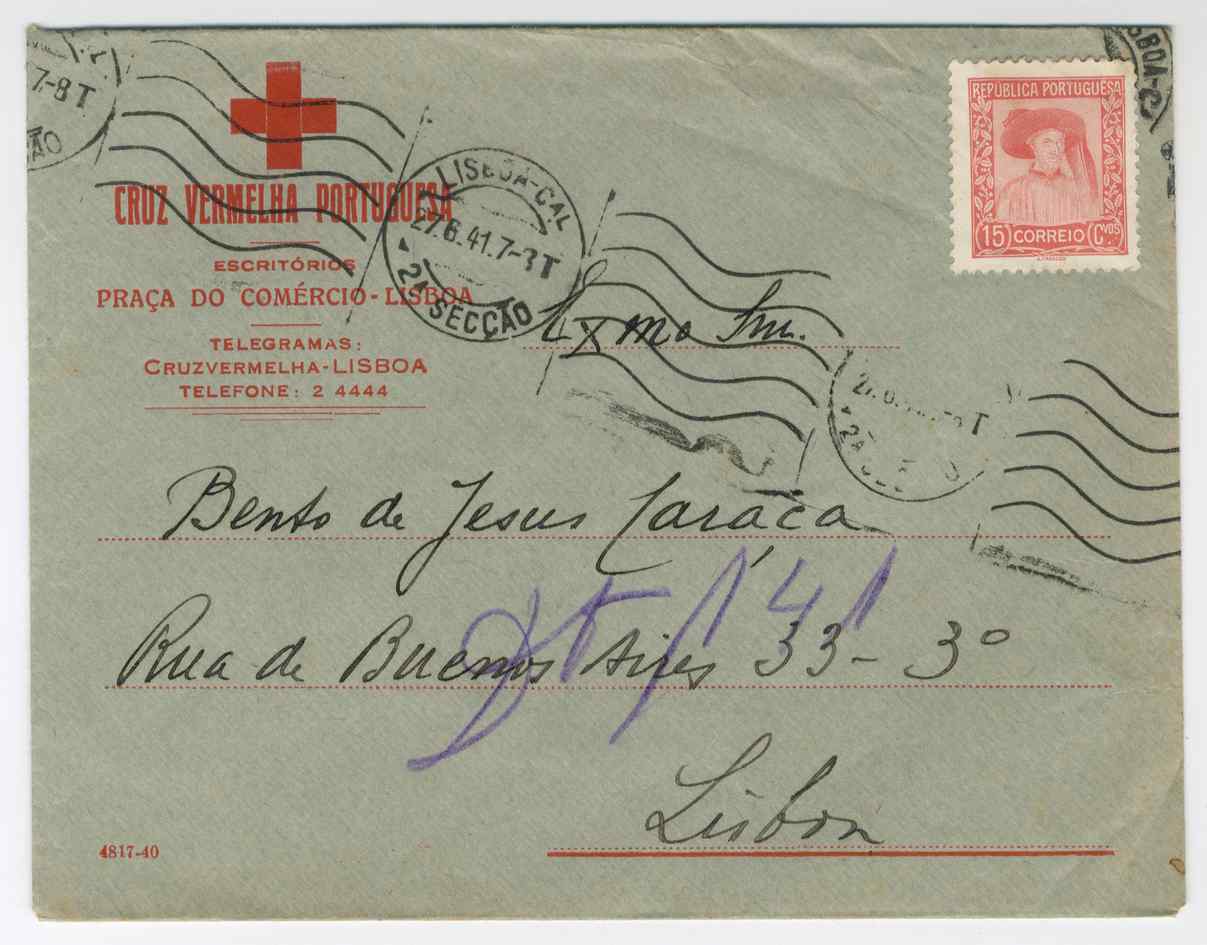 7-8T
CRUZ VERMELHA PORTUGUESA
ESCRITÓRIOS
PRAÇA DO COMÉRCIO - LISBOA
TELEGRAMAS:
CRUZVERMELHA-LISBOA
TELEFONE: 2 4444
LISBOA-C4L
27.6.41.7-8T
2A SECÇÃO
REPÚBLICA PORTUGUESA
15 CORREIO CVOS
Exmo Snr.
Bento de Jesus Caraça
Rua de Buenos Aires 33 - 3º
Lisboa
4817-40